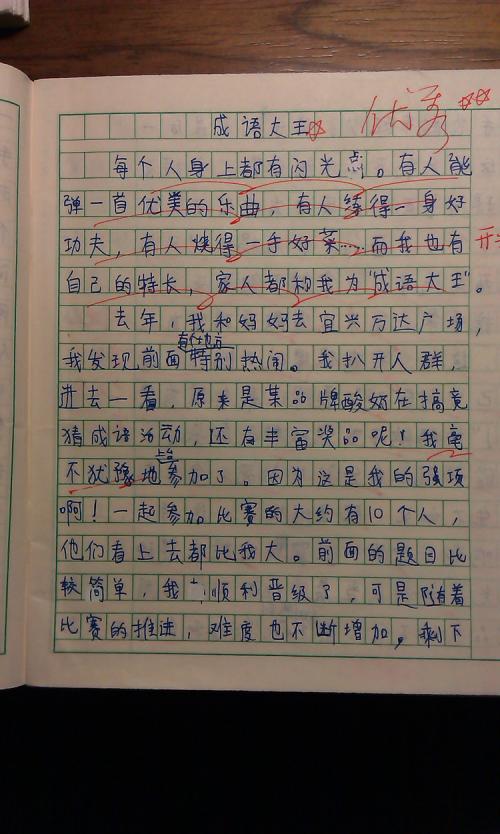 成语大王
优秀
每个人身上都有闪光点。有人能
弹一首优美的乐曲，有人练得一身好
功夫，有人烧得一手好菜……而我也有
自己的特长，家人都和我为“成语大王”。
去年，我和妈妈去宜兴万达广场，
有个地方
我发现前面特别热闹。我扒开人群，
进去一看，原来是某品牌酸奶在搞竞
猜成语活动，还有丰富奖品呢！我毫
不犹豫地参加了。因为这是我的强项
啊！一起参加比赛的大约有10个人，
他们看上去都比我大。前面的题目比
较简单，我顺利晋级了，可是随着
比赛的推进，难度也不断增加，剩下